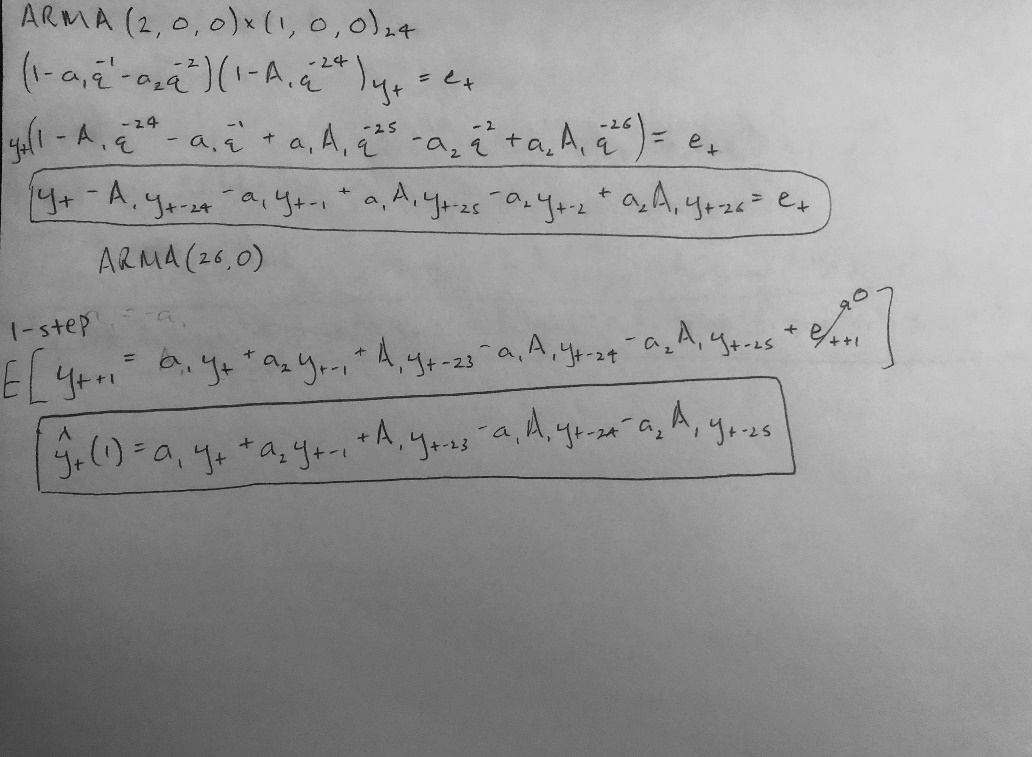 ARMA (2,0,0)×(1,0,0)₂₄
(1-a₁q⁻¹-a₂q⁻²)(1-A₁q⁻²⁴)yₜ = eₜ
yₜ(1-A₁q⁻²⁴-a₁q⁻¹+a₁A₁q⁻²⁵-a₂q⁻²+a₂A₁q⁻²⁶) = eₜ
yₜ-A₁yₜ₋₂₄-a₁yₜ₋₁+a₁A₁yₜ₋₂₅-a₂yₜ₋₂+a₂A₁yₜ₋₂₆ = eₜ
ARMA(26,0)
1-step
E[yₜ₊₁ = a₁yₜ+a₂yₜ₋₁+A₁yₜ₋₂₃-a₁A₁yₜ₋₂₄-a₂A₁yₜ₋₂₅+eₜ₊₁ 0]
ŷₜ(1) = a₁yₜ+a₂yₜ₋₁+A₁yₜ₋₂₃-a₁A₁yₜ₋₂₄-a₂A₁yₜ₋₂₅